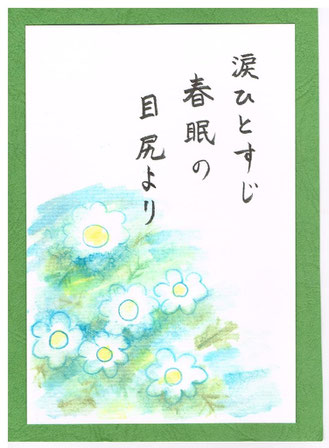 涙ひとすじ
春眠の
目尻より